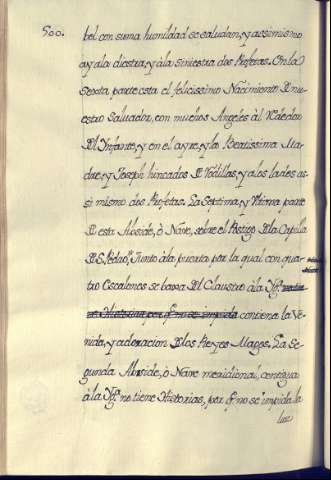 500.
bel con suma humildad se saludan, y assimismo
ay ala diestra, y à la siniestra dos Profetas. En la
Sexta parte esta el felicissimo Nacimiento de nu-
estro Salvador, con muchos Angeles al rededor
del Infante, y en el ayre, y la Beatissima Ma-
dre, y Joseph hincados de rodillas, y alos lados as-
si mismo dos Profetas. La Septima, y ultima parte
de esta Abside, ò Nave, sobre el Postigo de la Capilla
de S. Pedro, junto à la puerta por la qual con qua-
tro Escalones se baxa del Claustro à la Ygl.ª
contiene la Ve-
nida, y adoracion de los Reyes Magos. La Se-
gunda Abside, ò Nave meridional, contigua
à la Ygl.ª no tiene Historias, por q. no se impida la
luz